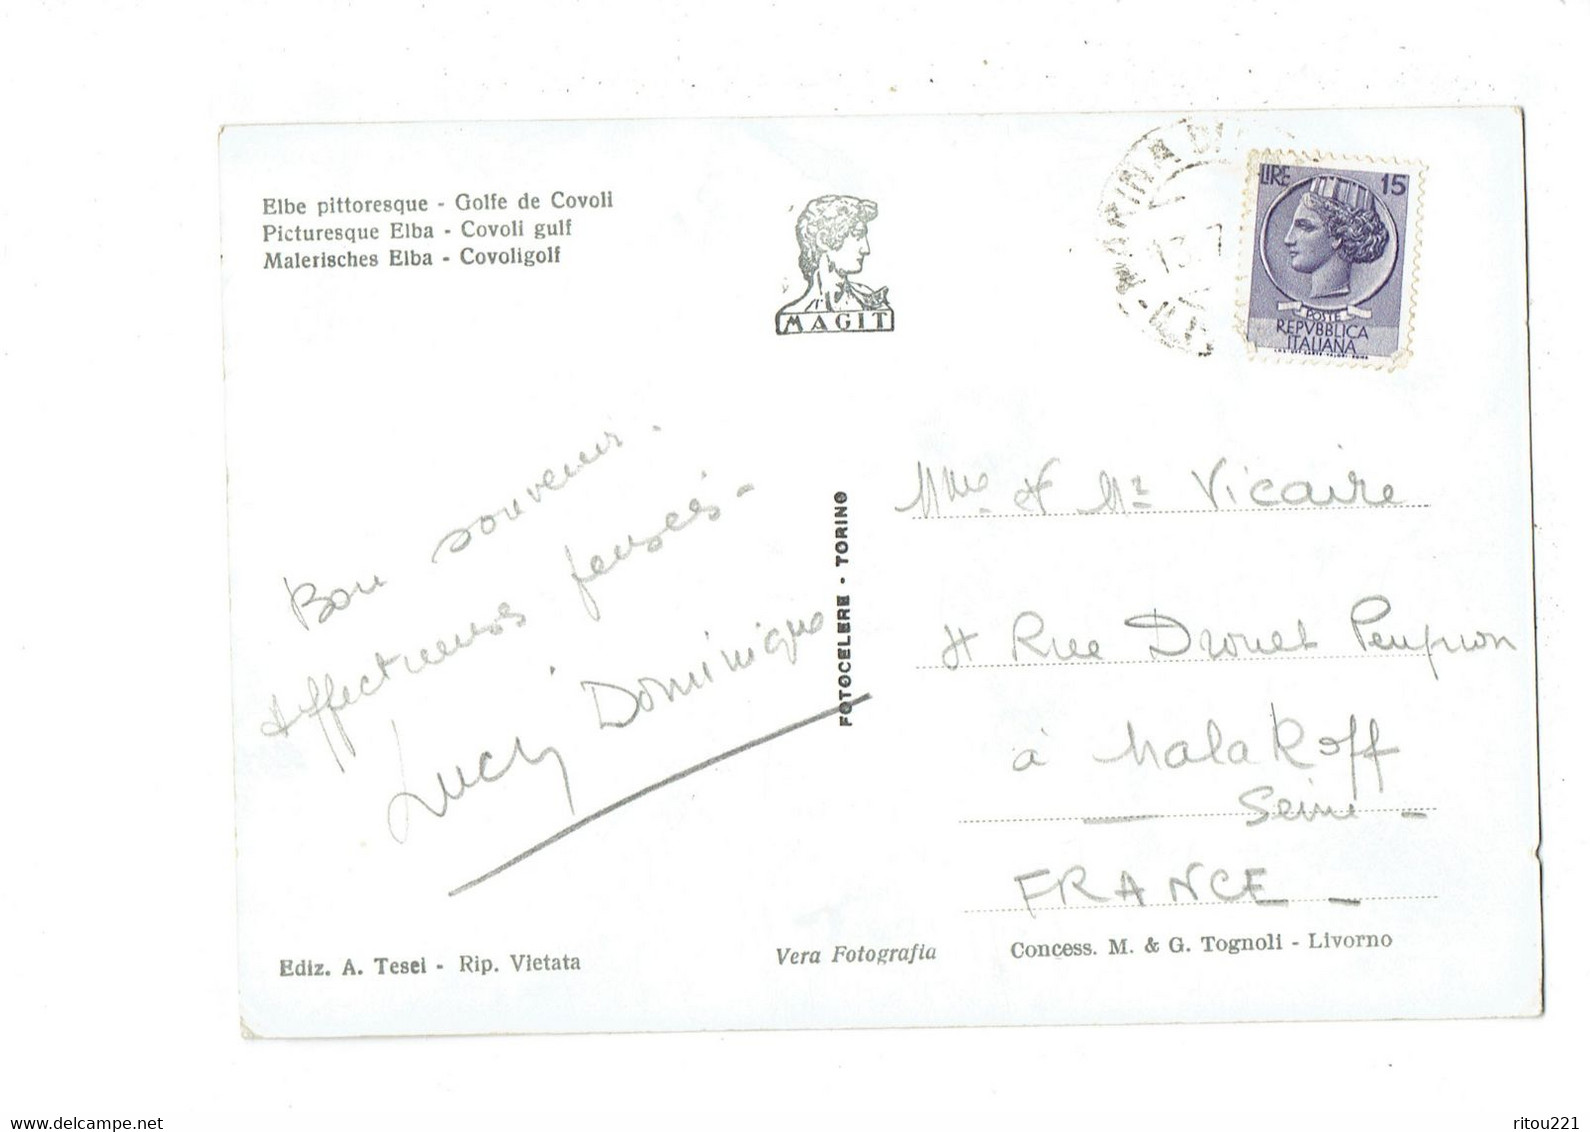 Elbe pittoresque - Golfe de Covoli
Picturesque Elba - Covoli gulf
Malerisches Elba - Covoligolf
MAGIT
MARINA
LIRE 15
POSTE
REPVBBLICA
ITALIANA
Bon souvenir.
Affectueuses pensées -
Lucy Dominique
FOTOCELERE - TORINO
Mme & Mr Vicaire
Rue Drouet Peupion
à Malakoff
Seine -
FRANCE -
Ediz. A. Tesei - Rip. Vietata
Vera Fotografia
Concess. M. & G. Tognoli - Livorno
delcampe.net
ritou221